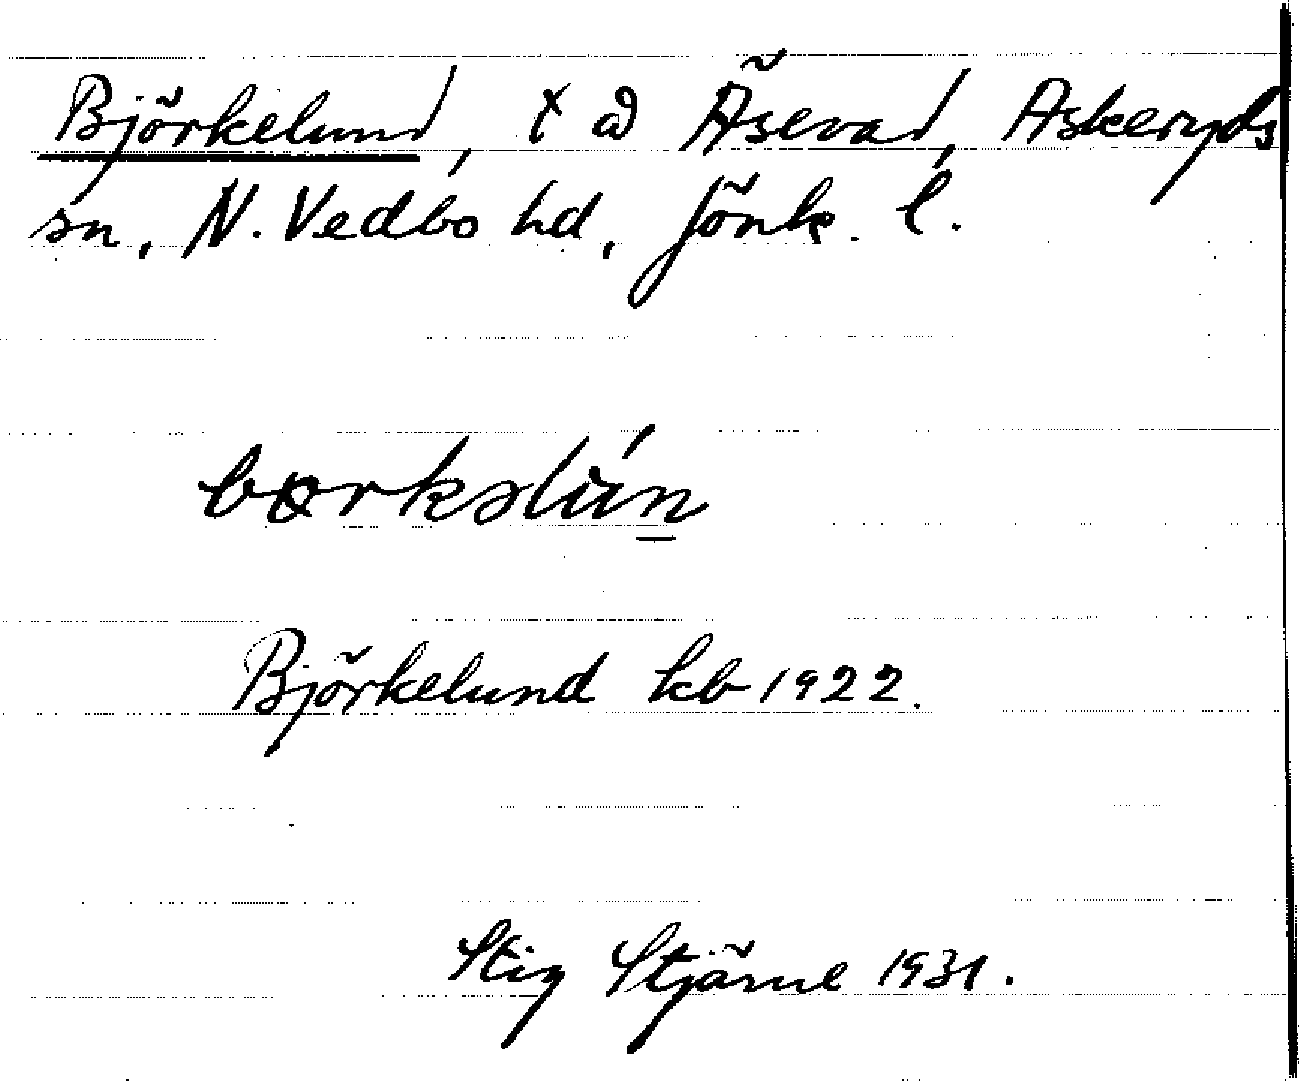 Björkelund, t å Äsevad, Askeryds
sn, N. Vedbo hd, Jönk. l.
børkəlún
Björkelund kb 1922.
Stig Stjärne 1931.